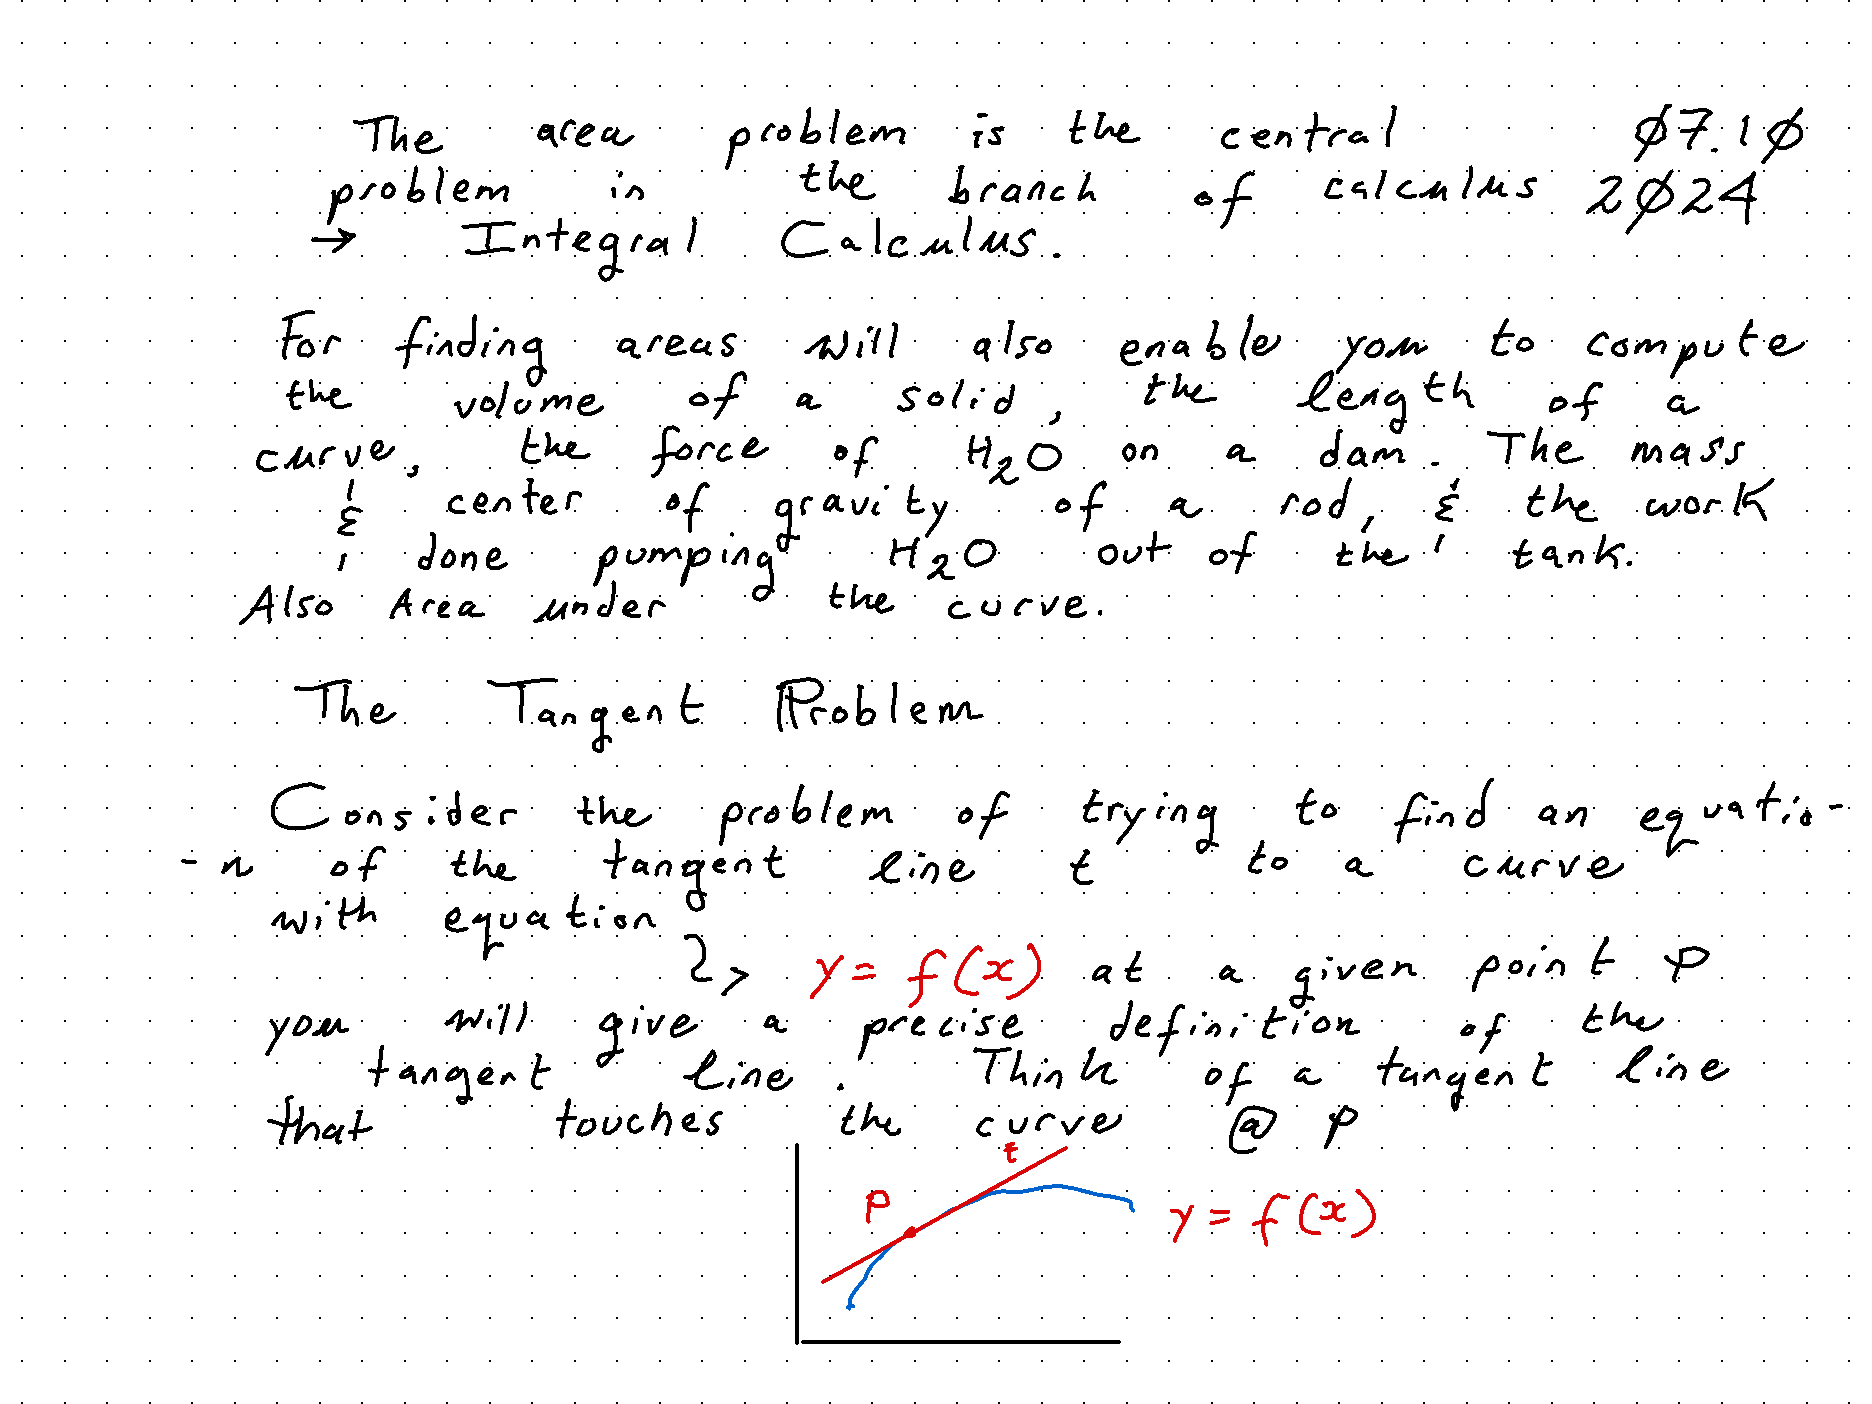 The area problem is the central
problem in the branch of calculus
→ Integral Calculus.
07.10
2024
For finding areas will also enable you to compute
the volume of a solid, the length of a
curve, the force of H₂O on a dam. The mass
& center of gravity of a rod, & the work
done pumping H₂O out of the tank.
Also Area under the curve.
The Tangent Problem
Consider the problem of trying to find an equatio-
-n of the tangent line t to a curve
with equation
y = f(x) at a given point P
you will give a precise definition of the
tangent line. Think of a tangent line
that touches the curve @ P
t
P
y = f(x)